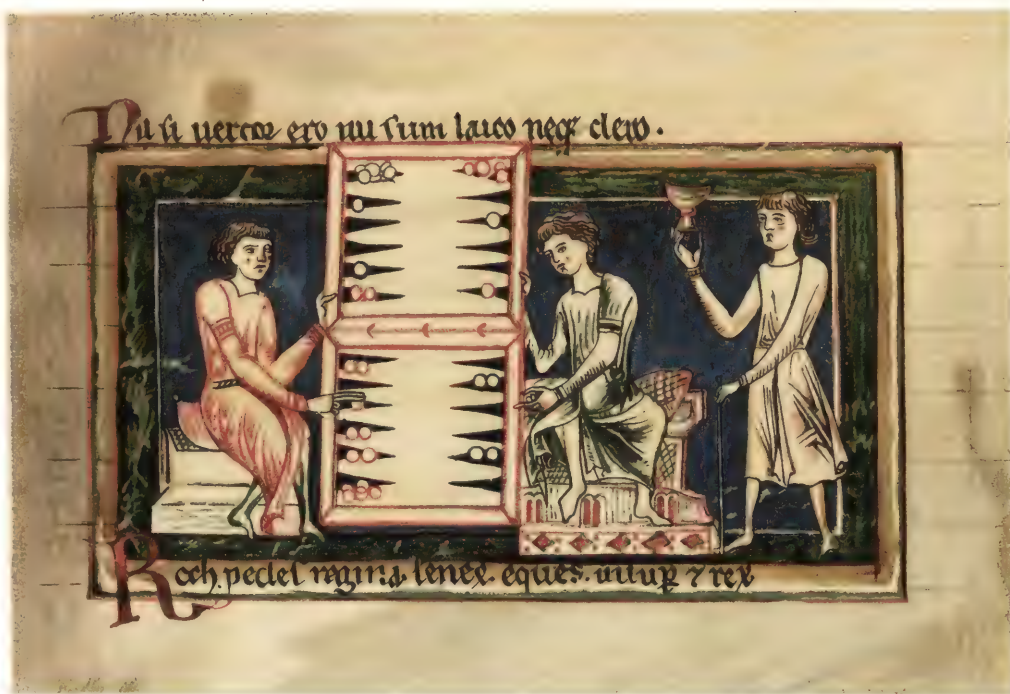 Nu li uertor ero nu sum laico neqꝫ clero.
Roch. pedes regina. senex. eques. insuꝑ ⁊ rex